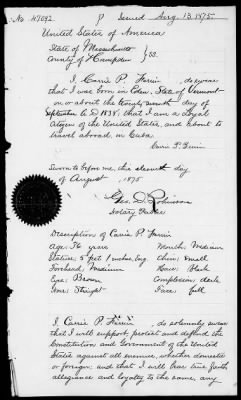 No 47092. Issued Aug. 13 1875.
United States of America
State of Massachusetts
County of Hampden } SS.
I, Carrie P. Farrin do swear
that I was born in Eden, State of Vermont
on or about the twenty seventh day of
September A D 1838; that I am a Loyal
Citizen of the United States, and about to
travel abroad, in Cuba.
Carrie P. Farrin
Sworn to before me, this eleventh day
of August, 1875.
Geo. D. Robinson
Notary Public
Description of Carrie P. Farrin
Age: 36 years Mouth: Medium
Stature: 5 feet 1 inches, Eng. Chin: Small
Forehead, Medium Hair: Black
Eyes: Brown Complexion: dark
Nose: Straight Face: full
I, Carrie P. Farrin do solemnly swear
that I will support, protect and defend the
Constitution and Government of the United
States against all enemies, whether domestic
or foreign; and that I will bear true faith,
allegiance and loyalty to the same, any